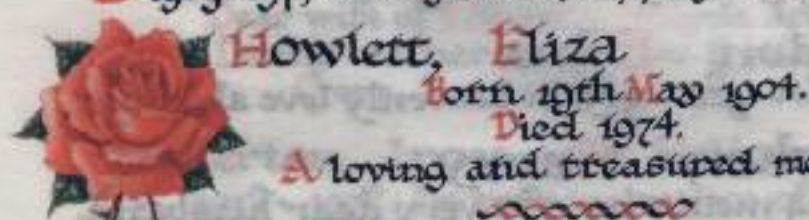 Howlett, Eliza
Born 19th May 1904.
Died 1974.
A loving and treasured